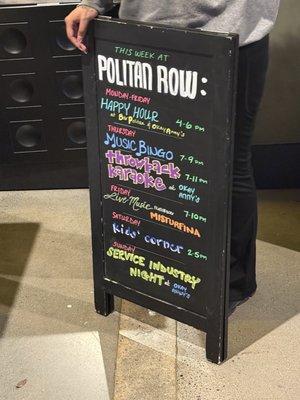 THIS WEEK AT
POLITAN ROW:
MONDAY-FRIDAY
HAPPY HOUR 4-6 pm
at BAR POLITAN & OKAY ANNY'S
THURSDAY
MUSIC BINGO 7-9 pm
throwback
karaoke at OKAY ANNY'S 7-11 pm
FRIDAY
Live Music MISTURFINA 7-10 pm
SATURDAY
Kids' Corner 2-5 pm
SUNDAY
SERVICE INDUSTRY
NIGHT at OKAY ANNY'S